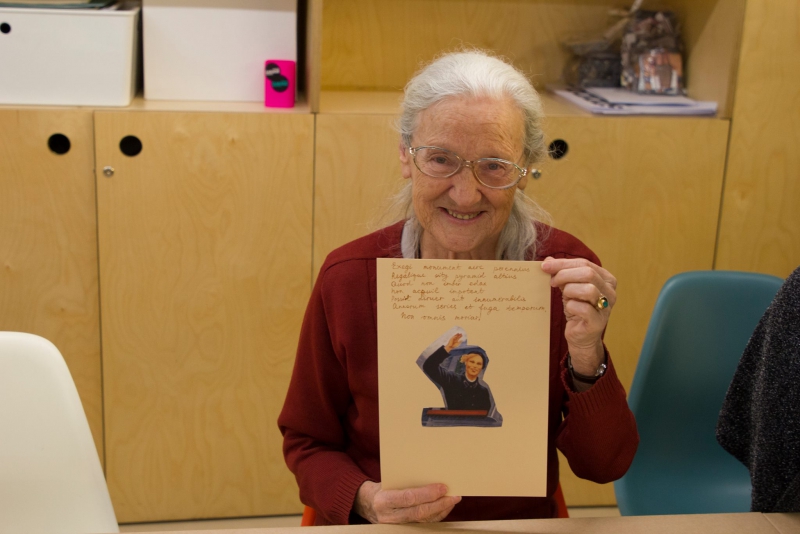 Exegi monument aere perennius
Regalique situ pyramid altius
Quod non imber edax
Non aquil impotent
aut innumerabilis
Annorum series et fuga temporum,
Non omnis moriar